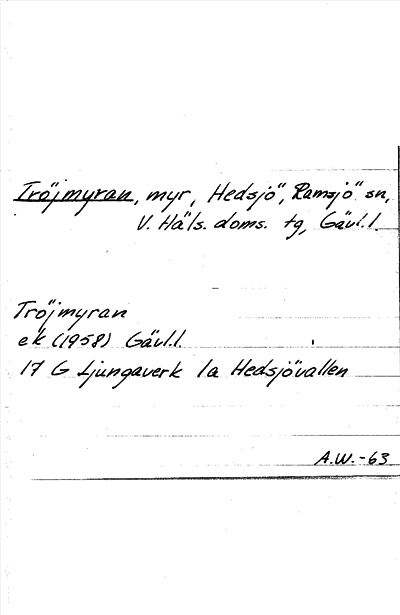 Tröjmyran, myr, Hedsjö, Ramsjö sn,
V. Häls. doms. tg, Gävl.l.
Tröjmyran
ek (1958) Gävl.l.
17 G Ljungaverk 1a Hedsjövallen
A.W.-63